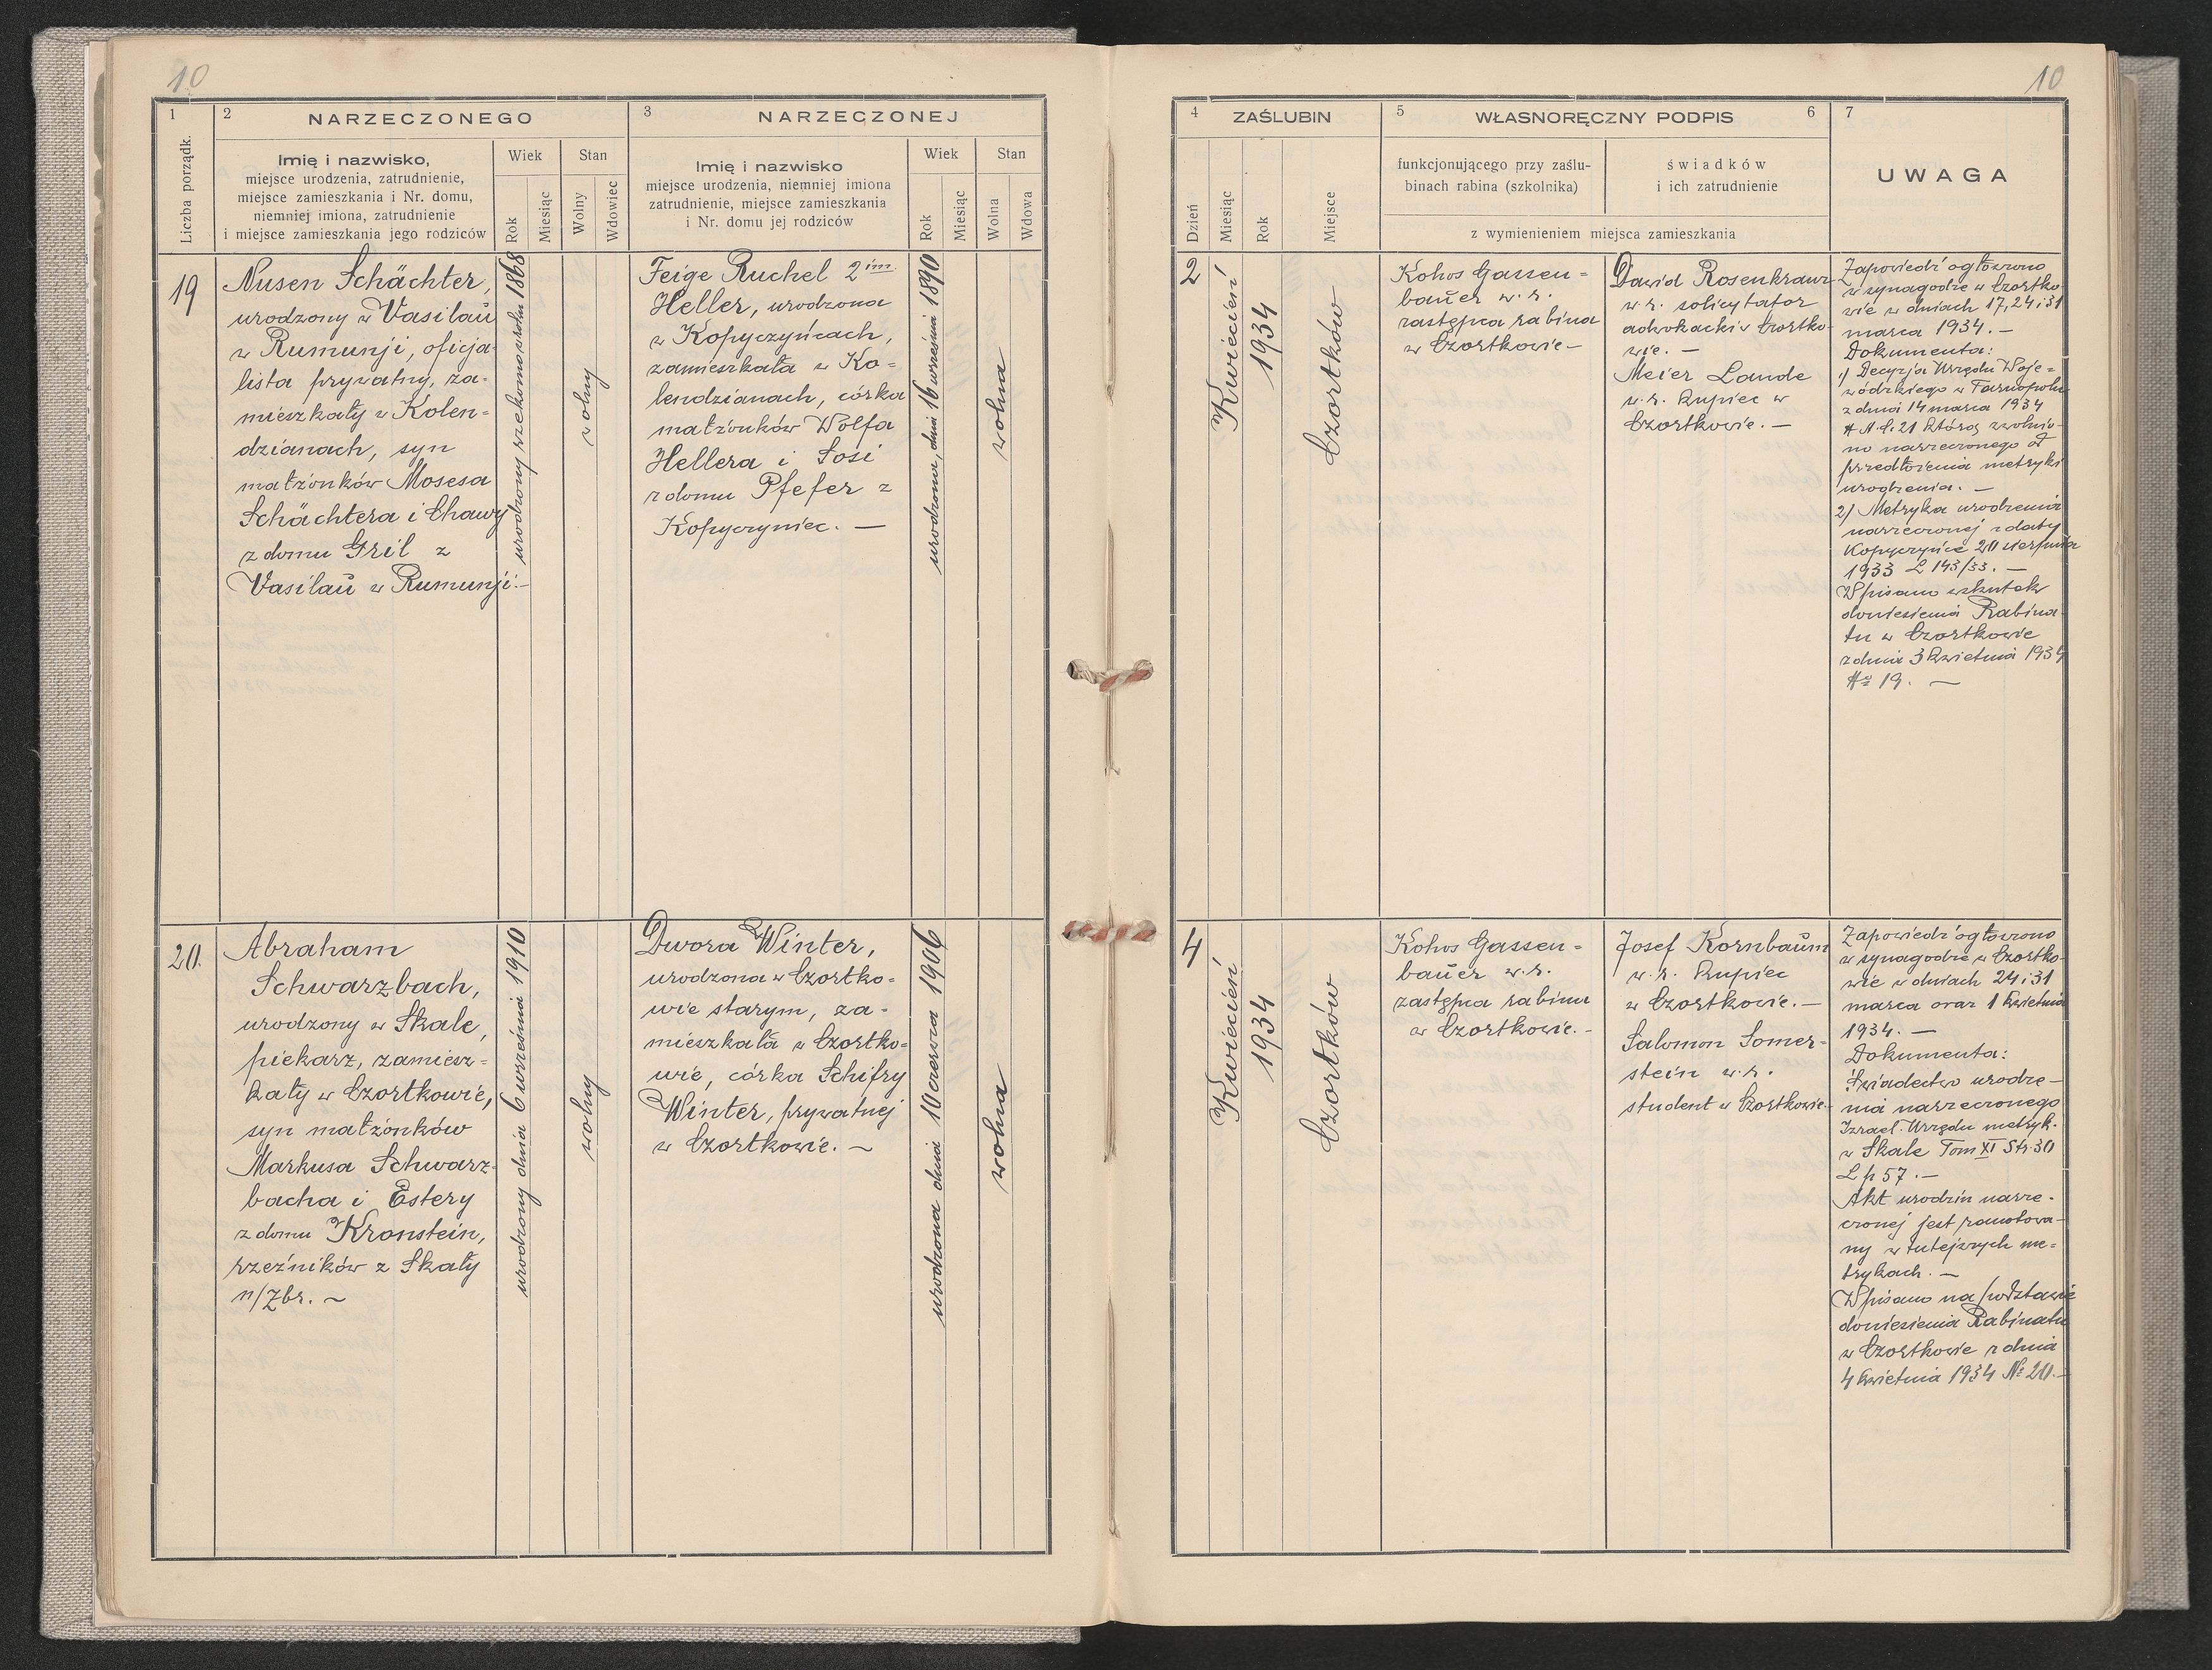 10
1
Liczba porządk.
2
NARZECZONEGO
Imię i nazwisko,
miejsce urodzenia, zatrudnienie,
miejsce zamieszkania i Nr. domu,
niemniej imiona, zatrudnienie
i miejsce zamieszkania jego rodziców
Wiek
Rok
Miesiąc
Stan
Wolny
Wdowiec
3
NARZECZONEJ
Imię i nazwisko
miejsce urodzenia, niemniej imiona
zatrudnienie, miejsce zamieszkania
i Nr. domu jej rodziców
Wiek
Rok
Miesiąc
Stan
Wolna
Wdowa
19
Nusen Schächter,
urodzony w Vasilaŭ
w Rumunji, oficja-
lista prywatny, za-
mieszkały w Kolen-
dzianach, syn
małżonków Mosesa
Schächtera i Chawy
z domu Gril z
Vasilaŭ w Rumunji.-
urodzony rzekomo w roku 1868
wolny
Feige Ruchel 2 im.
Heller, urodzona
w Kopyczyńcach,
zamieszkała w Ko-
lendzianach, córka
małżonków Wolfa
Hellera i Sosi
z domu Pfefer z
Kopyczyniec. —
urodzona, dnia 16 września 1890
wolna
20.
Abraham
Schwarzbach,
urodzony w Skale,
piekarz, zamiesz-
kały w Czortkowie,
syn małżonków
Markusa Schwarz-
bacha i Estery
z domu Kronstein,
rzeźników z Skały
n/Zbr. ~
urodzony dnia 6 września 1910
wolny
Dwora Winter,
urodzona w Czortko-
wie starym, za-
mieszkała w Czortko-
wie, córka Schifry
Winter, prywatnej
w Czortkowie. ~
urodzona dnia 10 czerwca 1906
wolna
10
4
ZAŚLUBIN
Dzień
Miesiąc
Rok
Miejsce
5
WŁASNORĘCZNY PODPIS
6
funkcjonującego przy zaślu-
binach rabina (szkolnika)
świadków
i ich zatrudnienie
z wymienieniem miejsca zamieszkania
7
UWAGA
2
Kwiecień
1934
Czortków
Kohos Gassen-
baŭer w.r.
zastępca rabina
w Czortkowie —
Dawid Rosenkranz
w.r. solicytator
adwokacki w Czortko-
wie. —
Meier Lande
w.r. kupiec w
Czortkowie. —
Zapowiedzi ogłoszono
w synagodze w Czortko-
wie w dniach 17, 24 i 31
marca 1934. —
Dokumenta:
1) Decyzja Urzędu Woje-
wódzkiego w Tarnopolu
z dnia 14 marca 1934
21 którą zwolnio-
no narzeczonego od
przedłożenia metryki
urodzenia. —
2) Metryka urodzenia
narzeczonej z daty
Kopyczyńce 20 sierpnia
1933 L 143/33. —
Wpisano wskutek
doniesienia Rabina-
tu w Czortkowie
z dnia 3 kwietnia 1934
No 19. —
4
Kwiecień
1934
Czortków
Kohos Gassen-
baŭer w.r.
zastępca rabina
w Czortkowie. -
Josef Kornbaŭm
w.r. kupiec
w Czortkowie. —
Salomon Somer-
stein w.r.
student w Czortkowie.
Zapowiedzi ogłoszono
w synagodze w Czortko-
wie w dniach 24 i 31
marca oraz 1 kwietnia
1934. —
Dokumenta:
Świadectwo urodze-
nia narzeczonego
Izrael. Urzędu metryk.
w Skale Tom XI Str. 30
L p 57. —
Akt urodzin narze-
czonej jest zanotowa-
ny w tutejszych me-
trykach. —
Wpisano na podstawie
doniesienia Rabinatu
w Czortkowie z dnia
4 kwietnia 1934 No 20. —